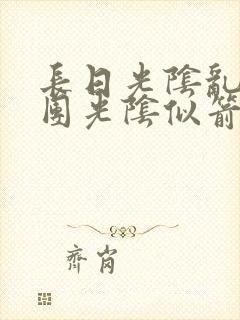 長日光陰亂
園光陰似箭
齊肖